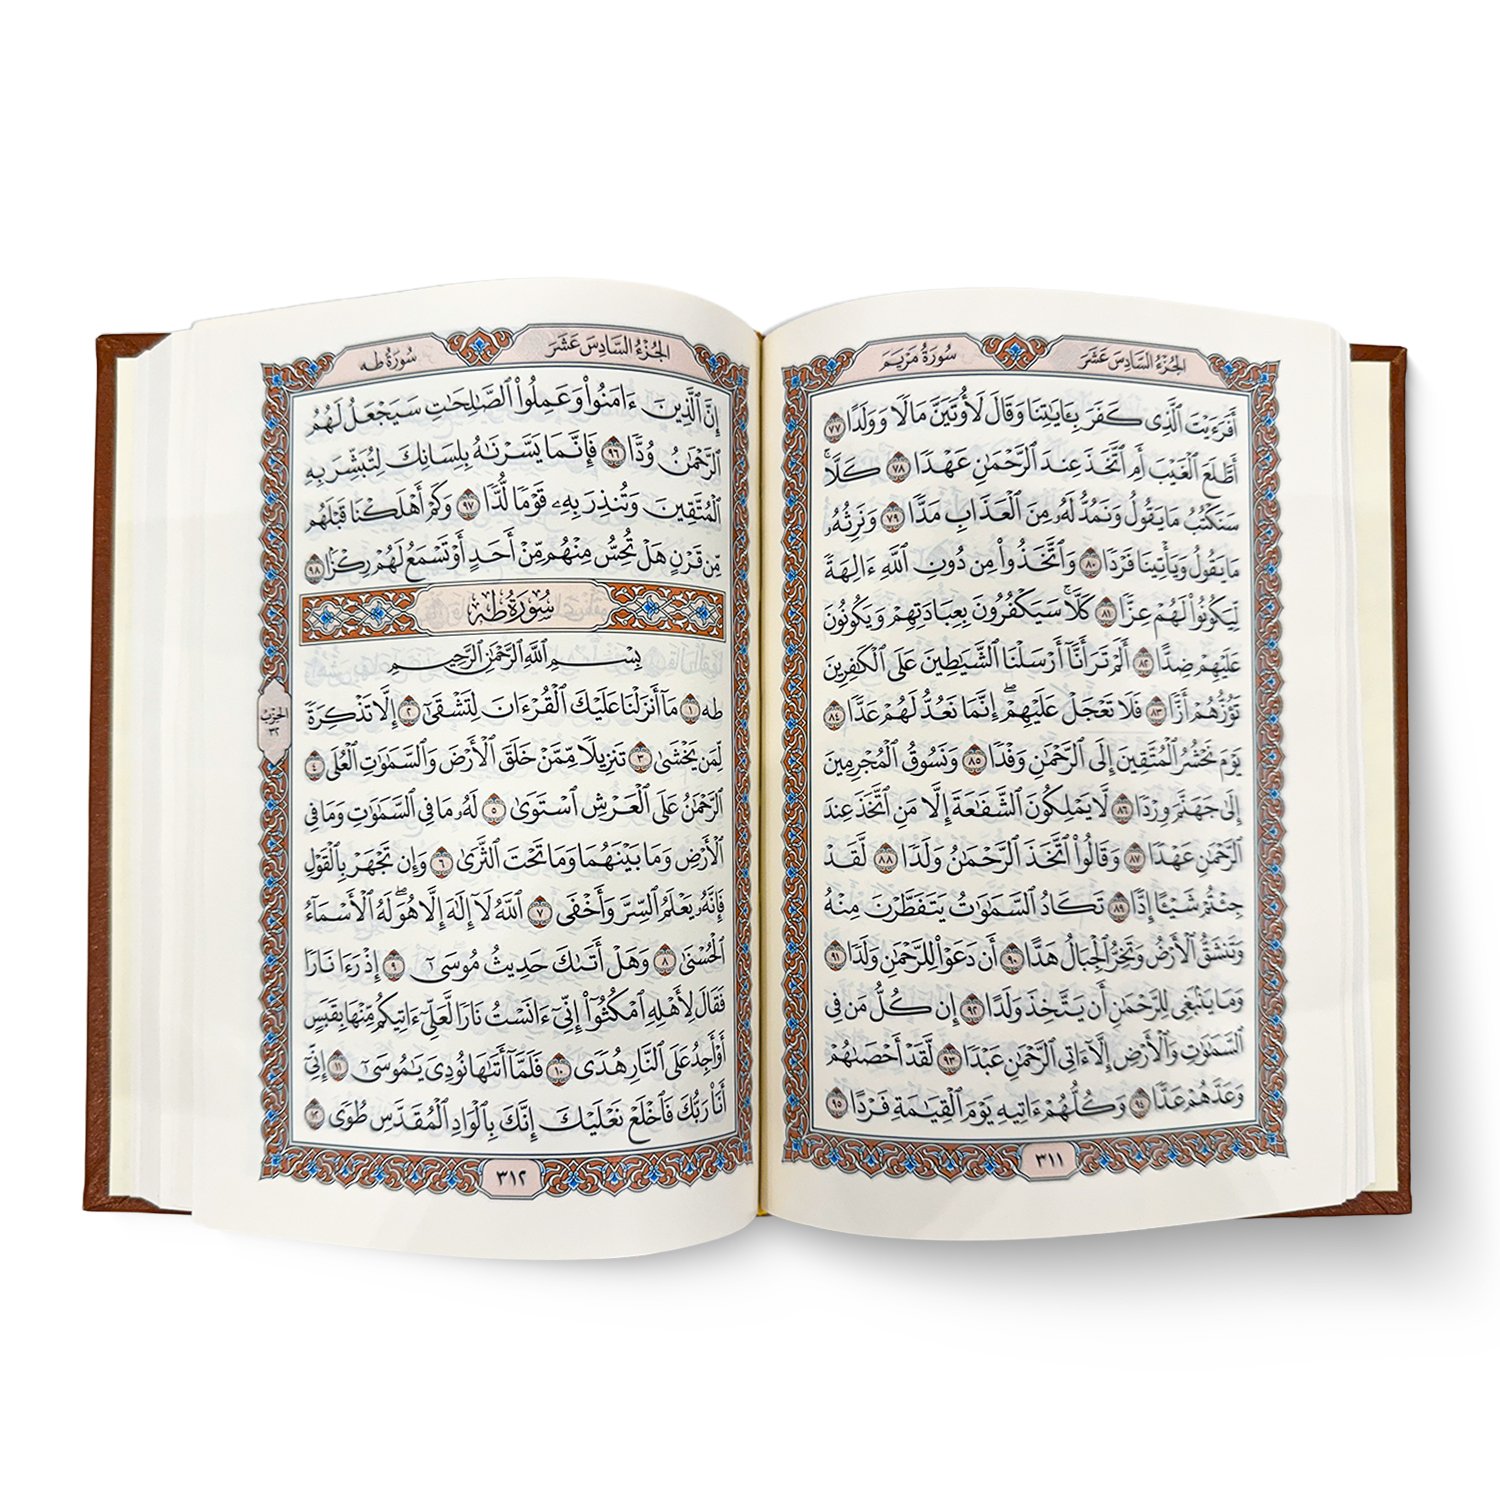 الجُزْءُ السَّادِسَ عَشَرَ
سُورَةُ مَرْيَمَ
أَفَرَءَيْتَ ٱلَّذِى كَفَرَ بِـَٔايَٰتِنَا وَقَالَ لَأُوتَيَنَّ مَالًا وَوَلَدًا ٧٧
أَطَّلَعَ ٱلْغَيْبَ أَمِ ٱتَّخَذَ عِندَ ٱلرَّحْمَٰنِ عَهْدًا ٧٨ كَلَّا ۚ
سَنَكْتُبُ مَا يَقُولُ وَنَمُدُّ لَهُۥ مِنَ ٱلْعَذَابِ مَدًّا ٧٩ وَنَرِثُهُۥ
مَا يَقُولُ وَيَأْتِينَا فَرْدًا ٨٠ وَٱتَّخَذُوا۟ مِن دُونِ ٱللَّهِ ءَالِهَةً
لِّيَكُونُوا۟ لَهُمْ عِزًّا ٨١ كَلَّا ۚ سَيَكْفُرُونَ بِعِبَادَتِهِمْ وَيَكُونُونَ
عَلَيْهِمْ ضِدًّا ٨٢ أَلَمْ تَرَ أَنَّآ أَرْسَلْنَا ٱلشَّيَٰطِينَ عَلَى ٱلْكَٰفِرِينَ
تَؤُزُّهُمْ أَزًّا ٨٣ فَلَا تَعْجَلْ عَلَيْهِمْ ۖ إِنَّمَا نَعُدُّ لَهُمْ عَدًّا ٨٤
يَوْمَ نَحْشُرُ ٱلْمُتَّقِينَ إِلَى ٱلرَّحْمَٰنِ وَفْدًا ٨٥ وَنَسُوقُ ٱلْمُجْرِمِينَ
إِلَىٰ جَهَنَّمَ وِرْدًا ٨٦ لَّا يَمْلِكُونَ ٱلشَّفَٰعَةَ إِلَّا مَنِ ٱتَّخَذَ عِندَ
ٱلرَّحْمَٰنِ عَهْدًا ٨٧ وَقَالُوا۟ ٱتَّخَذَ ٱلرَّحْمَٰنُ وَلَدًا ٨٨ لَّقَدْ
جِئْتُمْ شَيْـًٔا إِدًّا ٨٩ تَكَادُ ٱلسَّمَٰوَٰتُ يَتَفَطَّرْنَ مِنْهُ
وَتَنشَقُّ ٱلْأَرْضُ وَتَخِرُّ ٱلْجِبَالُ هَدًّا ٩٠ أَن دَعَوْا۟ لِلرَّحْمَٰنِ وَلَدًا ٩١
وَمَا يَنۢبَغِى لِلرَّحْمَٰنِ أَن يَتَّخِذَ وَلَدًا ٩٢ إِن كُلُّ مَن فِى
ٱلسَّمَٰوَٰتِ وَٱلْأَرْضِ إِلَّآ ءَاتِى ٱلرَّحْمَٰنِ عَبْدًا ٩٣ لَّقَدْ أَحْصَىٰهُمْ
وَعَدَّهُمْ عَدًّا ٩٤ وَكُلُّهُمْ ءَاتِيهِ يَوْمَ ٱلْقِيَٰمَةِ فَرْدًا ٩٥
٣١١
الجُزْءُ السَّادِسَ عَشَرَ
سُورَةُ طه
إِنَّ ٱلَّذِينَ ءَامَنُوا۟ وَعَمِلُوا۟ ٱلصَّٰلِحَٰتِ سَيَجْعَلُ لَهُمُ
ٱلرَّحْمَٰنُ وُدًّا ٩٦ فَإِنَّمَا يَسَّرْنَٰهُ بِلِسَانِكَ لِتُبَشِّرَ بِهِ
ٱلْمُتَّقِينَ وَتُنذِرَ بِهِۦ قَوْمًا لُّدًّا ٩٧ وَكَمْ أَهْلَكْنَا قَبْلَهُم
مِّن قَرْنٍ هَلْ تُحِسُّ مِنْهُم مِّنْ أَحَدٍ أَوْ تَسْمَعُ لَهُمْ رِكْزًۢا ٩٨
سُورَةُ طه
بِسْمِ ٱللَّهِ ٱلرَّحْمَٰنِ ٱلرَّحِيمِ
طه ١ مَآ أَنزَلْنَا عَلَيْكَ ٱلْقُرْءَانَ لِتَشْقَىٰٓ ٢ إِلَّا تَذْكِرَةً
لِّمَن يَخْشَىٰ ٣ تَنزِيلًا مِّمَّنْ خَلَقَ ٱلْأَرْضَ وَٱلسَّمَٰوَٰتِ ٱلْعُلَى ٤
ٱلرَّحْمَٰنُ عَلَى ٱلْعَرْشِ ٱسْتَوَىٰ ٥ لَهُۥ مَا فِى ٱلسَّمَٰوَٰتِ وَمَا فِى
ٱلْأَرْضِ وَمَا بَيْنَهُمَا وَمَا تَحْتَ ٱلثَّرَىٰ ٦ وَإِن تَجْهَرْ بِٱلْقَوْلِ
فَإِنَّهُۥ يَعْلَمُ ٱلسِّرَّ وَأَخْفَى ٧ ٱللَّهُ لَآ إِلَٰهَ إِلَّا هُوَ ۖ لَهُ ٱلْأَسْمَآءُ
ٱلْحُسْنَىٰ ٨ وَهَلْ أَتَىٰكَ حَدِيثُ مُوسَىٰٓ ٩ إِذْ رَءَا نَارًا
فَقَالَ لِأَهْلِهِ ٱمْكُثُوٓا۟ إِنِّىٓ ءَانَسْتُ نَارًا لَّعَلِّىٓ ءَاتِيكُم مِّنْهَا بِقَبَسٍ
أَوْ أَجِدُ عَلَى ٱلنَّارِ هُدًى ١٠ فَلَمَّآ أَتَىٰهَا نُودِىَ يَٰمُوسَىٰٓ ١١ إِنِّىٓ
أَنَا۠ رَبُّكَ فَٱخْلَعْ نَعْلَيْكَ ۖ إِنَّكَ بِٱلْوَادِ ٱلْمُقَدَّسِ طُوًى ١٢
الحِزْبُ
٣٢
٣١٢